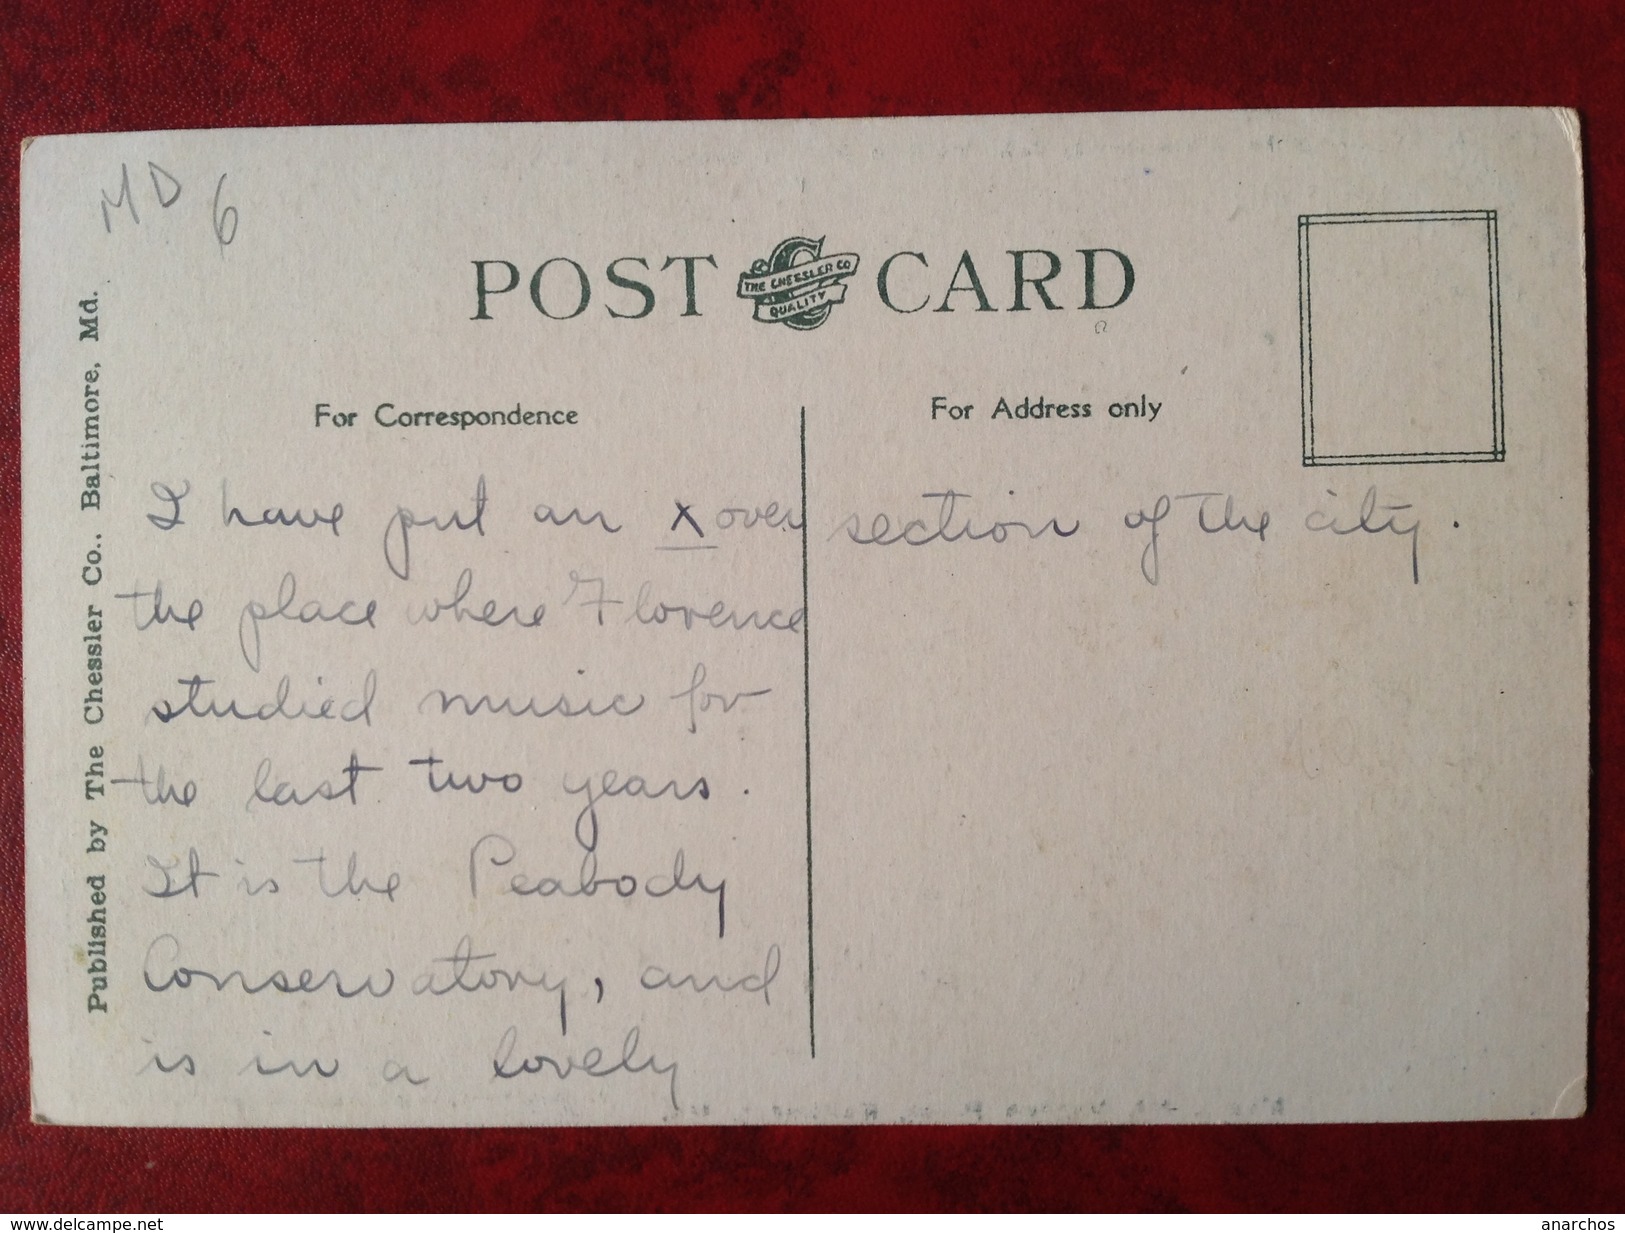 MD 6
POST CARD
THE CHESSLER CO
QUALITY
Published by The Chessler Co., Baltimore, Md.
For Correspondence
For Address only
I have put an x over
the place where Florence
studied music for
the last two years.
It is the Peabody
Conservatory, and
is in a lovely
section of the city.
www.delcampe.net
anarchos